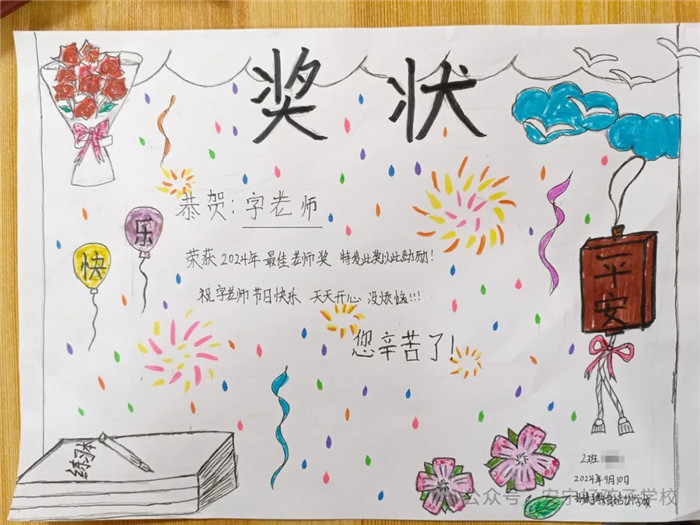 奖状
恭贺:字老师
荣获2024年最佳老师奖 特发此奖以此鼓励!
祝字老师节日快乐 天天开心 没烦恼!!!
您辛苦了!
快乐
平安
练习本
2班
2024年9月10日